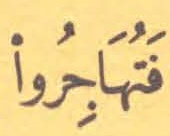 فَتُهَاجِرُوا۟